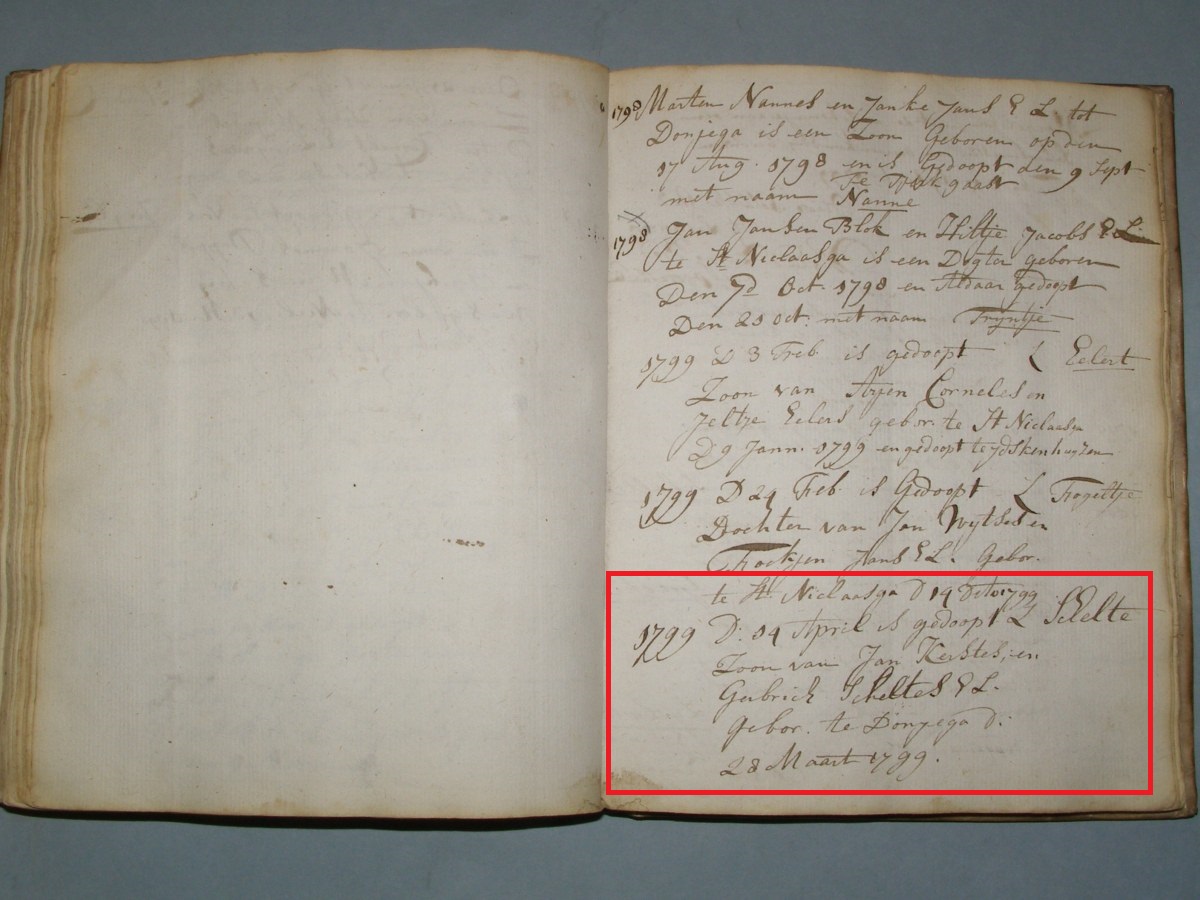 1798 Marten Nannes en Janke Jans E L tot
Donjega is een Zoon Geboren op den
17 Aug. 1798 en is Gedoopt den 9 Sept
met naam Nanne
1798 Jan Jansen Blok en Hiltje Jacobs E L
te St Niclaasga is een Dogter geboren
Den 7d Oct. 1798 en Aldaar gedoopt
Den 20 Oct: met naam Trijntje
1799 D 3 Feb is gedoopt Eelert
Zoon van Arjen Corneles en
Jeltje Eelers gebor. te St Niclaasga
D 9 Jann. 1799 en gedoopt te ydskenhuyzen
1799 D 24 Feb is Gedoopt Frogeltje
Dochter van Jan Wytses en
Froekjen Jans E L. Gebor.
te St. Niclaasga D 14 Dito 1799
1799 D: 14 April is gedoopt L Schelte
Zoon van Jan Kerstes, en
Gerbrich Scheltes E L.
gebor. te Donjega d:
28 Maart 1799.